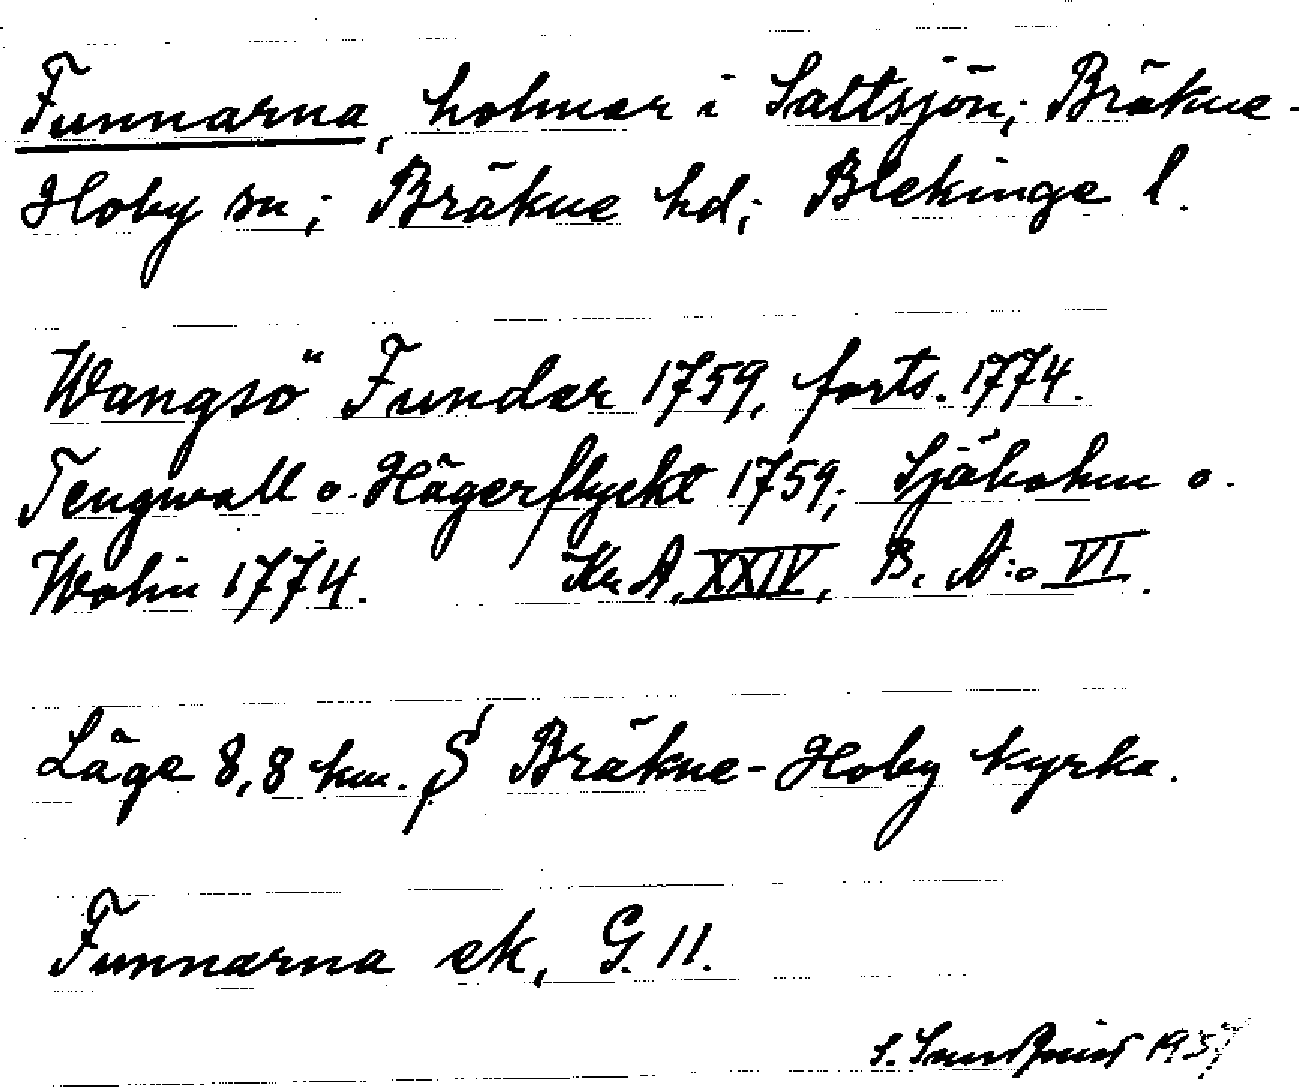 Funnarna, holmar i Saltsjön; Bräkne-
Hoby sn; Bräkne hd; Blekinge l.
Wangsö Fundar 1759, forts. 1774.
Tengwall o. Hägerflyckt 1759; Sjöbohm o.
Wohin 1774. Kr A, XXIV, B. A:o VI.
Läge 8,8 km. S Bräkne-Hoby kyrka.
Funnarna ek, G. 11.
S. Sundquist 1937